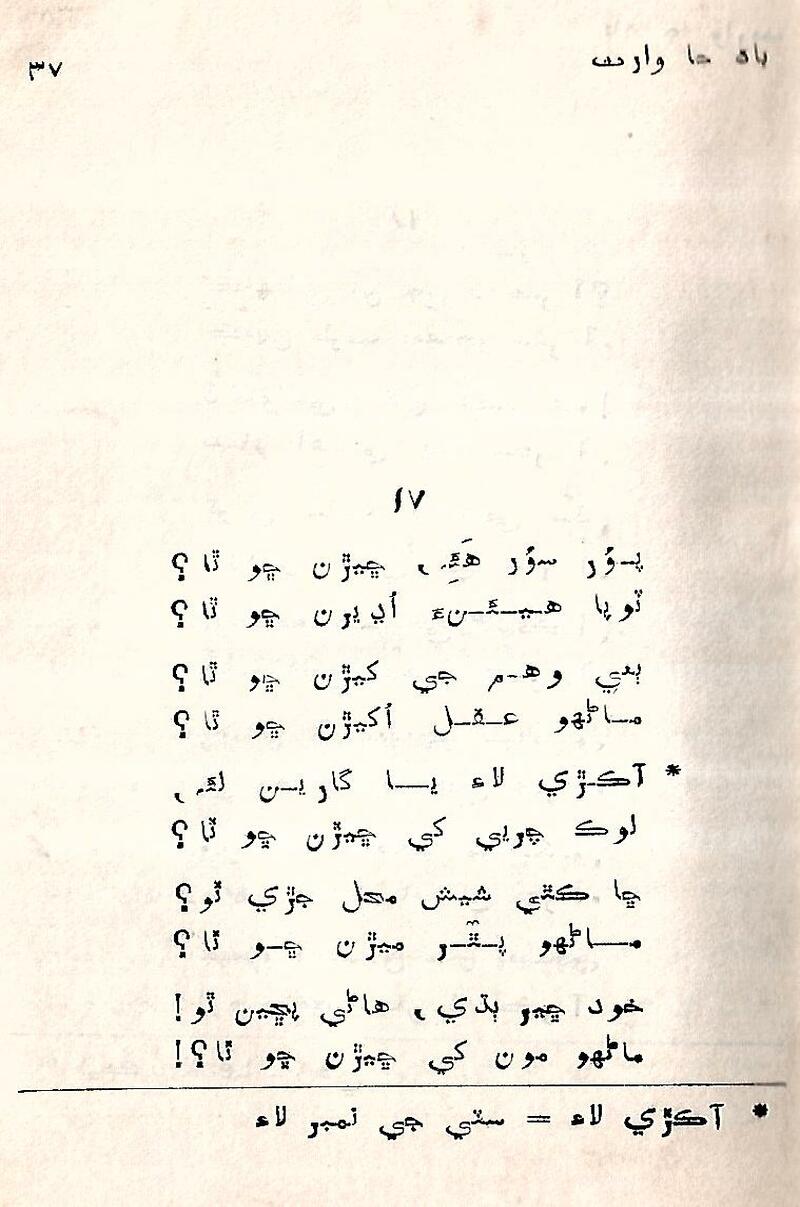 باھ جا وارث
٣٧
١٧
پـوُر سوُر هَئِہ، چيڙن ڇو ٿا؟
ٽوپا هيـئـنءَ اُڊيرن ڇو ٿا؟
ٻئي وهم جي کيڙن ڇو ٿا؟
ماڻهو عقل اُکيڙن ڇو ٿا؟
* آکـڙي لاءِ يـا گاريـن لئہ،
لوڪ چريي کي ڇيڙن ڇو ٿا؟
ڇا ڪٿي شيش محل جڙي ٿو؟
ماڻهو پٿـر ميڙن ڇو ٿا؟
خود ڇير ٻڌي، هاڻي پڇين ٿو!
ماڻهو مون کي ڇيڙن ڇو ٿا؟!
* آڪڙي لاءِ = سٽي جي نمبر لاءِ